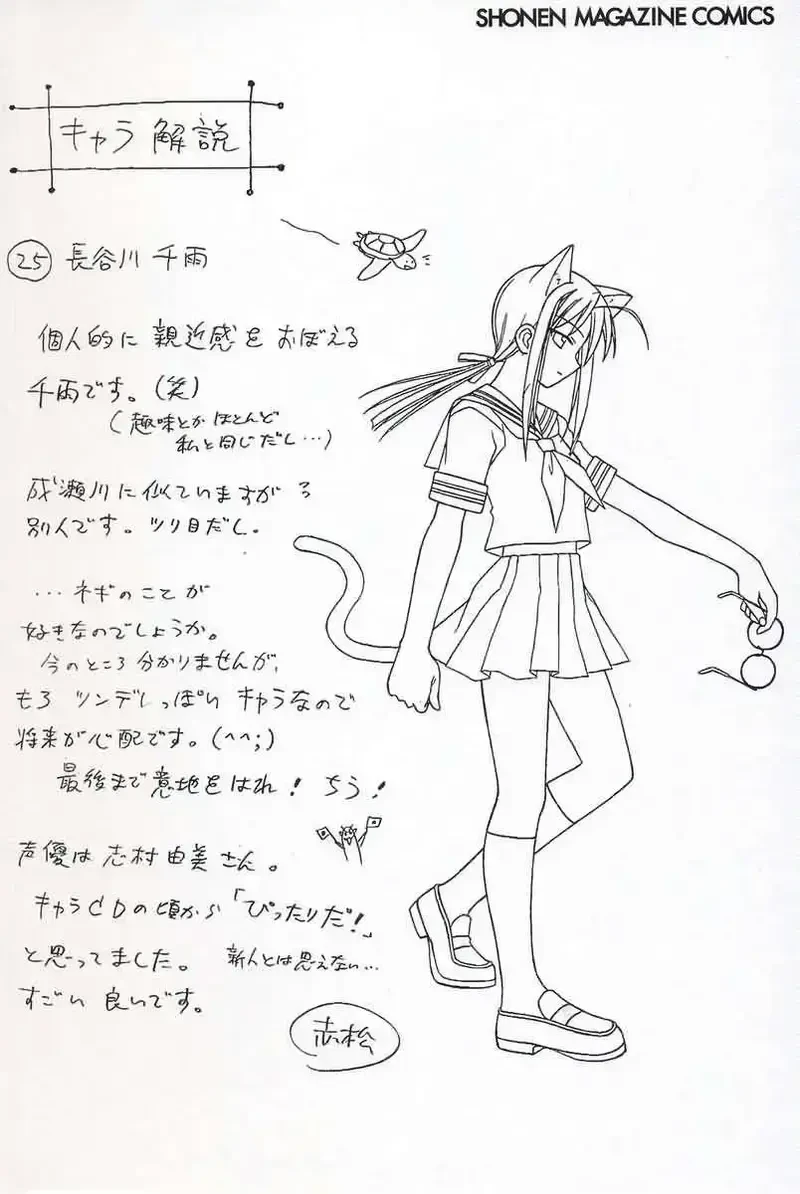 SHONEN MAGAZINE COMICS
キャラ 解説
25 長谷川 千雨
個人的に 親近感を おぼえる
千雨です。(笑)
(趣味とか ほとんど
私と同じだし…)
成瀬川に 似ていますが
別人です。ツリ目だし。
…ネギのことが
好きなのでしょうか。
今のところ 分かりませんが、
もろ ツンデレっぽい キャラなので
将来が心配です。(^^;)
最後まで 意地をはれ! ちう!
声優は 志村由美さん。
キャラCDの頃から「ぴったりだ!」
と思ってました。 新人とは思えない…
すごい 良いです。
赤松